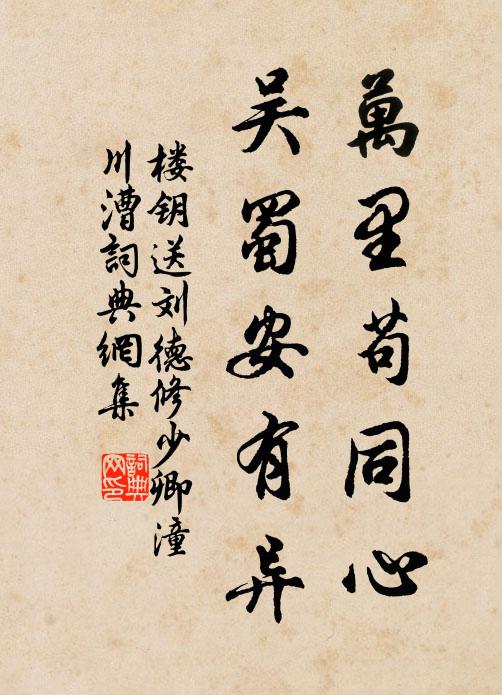 萬里苟同心
吴蜀安有异
楼钥送刘德修少卿潼
川漕詞典網集
詞典网印